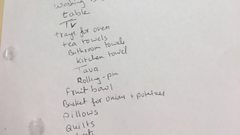 table
TV
trays for oven
tea towels
Bathroom towels
kitchen towel
Tava
Rolling-pin
Fruit bowl
Basket for onions + potatoes
pillows
Quilts